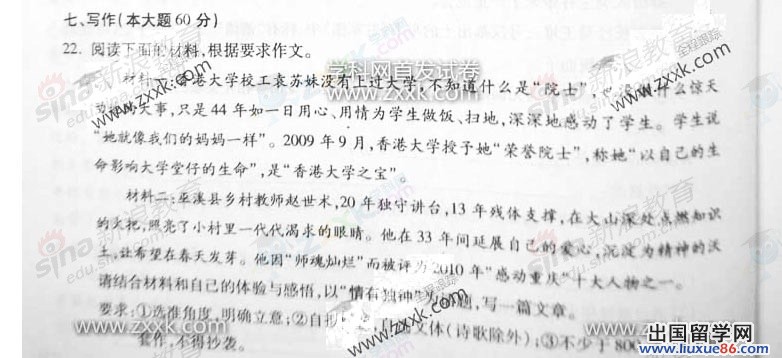 七、写作(本大题60分)
22. 阅读下面的材料,根据要求作文。
材料一:香港大学校工袁苏妹没有上过大学,不知道什么是“院士”,也没 什么惊天
动地的大事,只是44年如一日用心、用情为学生做饭、扫地,深深地感动了学生。学生说
“她就像我们的妈妈一样”。2009年9月,香港大学授予她“荣誉院士”,称她“以自己的生
命影响大学堂仔的生命”,是“香港大学之宝”。
材料二:巫溪县乡村教师赵世术,20年独守讲台,13年残体支撑,在大山深处点燃知识
的火把,照亮了小村里一代代渴求的眼睛。他在33年间延展自己的爱心,沉淀为精神的沃
土,让希望在春天发芽。他因“师魂灿烂”而被评为2010年“感动重庆”十大人物之一。
请结合材料和自己的体验与感悟,以“情有独钟”为 题,写一篇文章。
要求:①选准角度,明确立意;②自 文体(诗歌除外);③不少于800
套作,不得抄袭。
学科网首发试卷
www.zxxk.com
sina新浪教育
全程跟踪
出国留学网
www.liuxue86.com